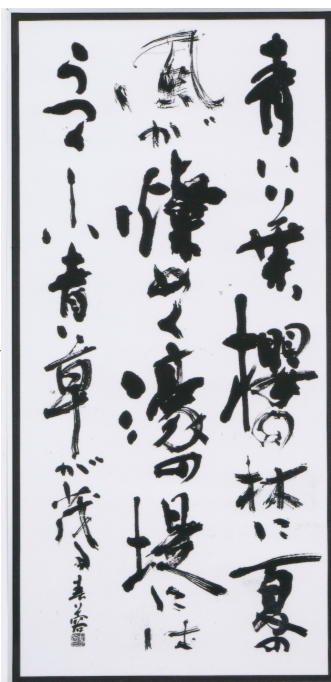 青い葉、櫻の林に夏の
風が燦めく濠の堤には
うつくしい青い草が茂る